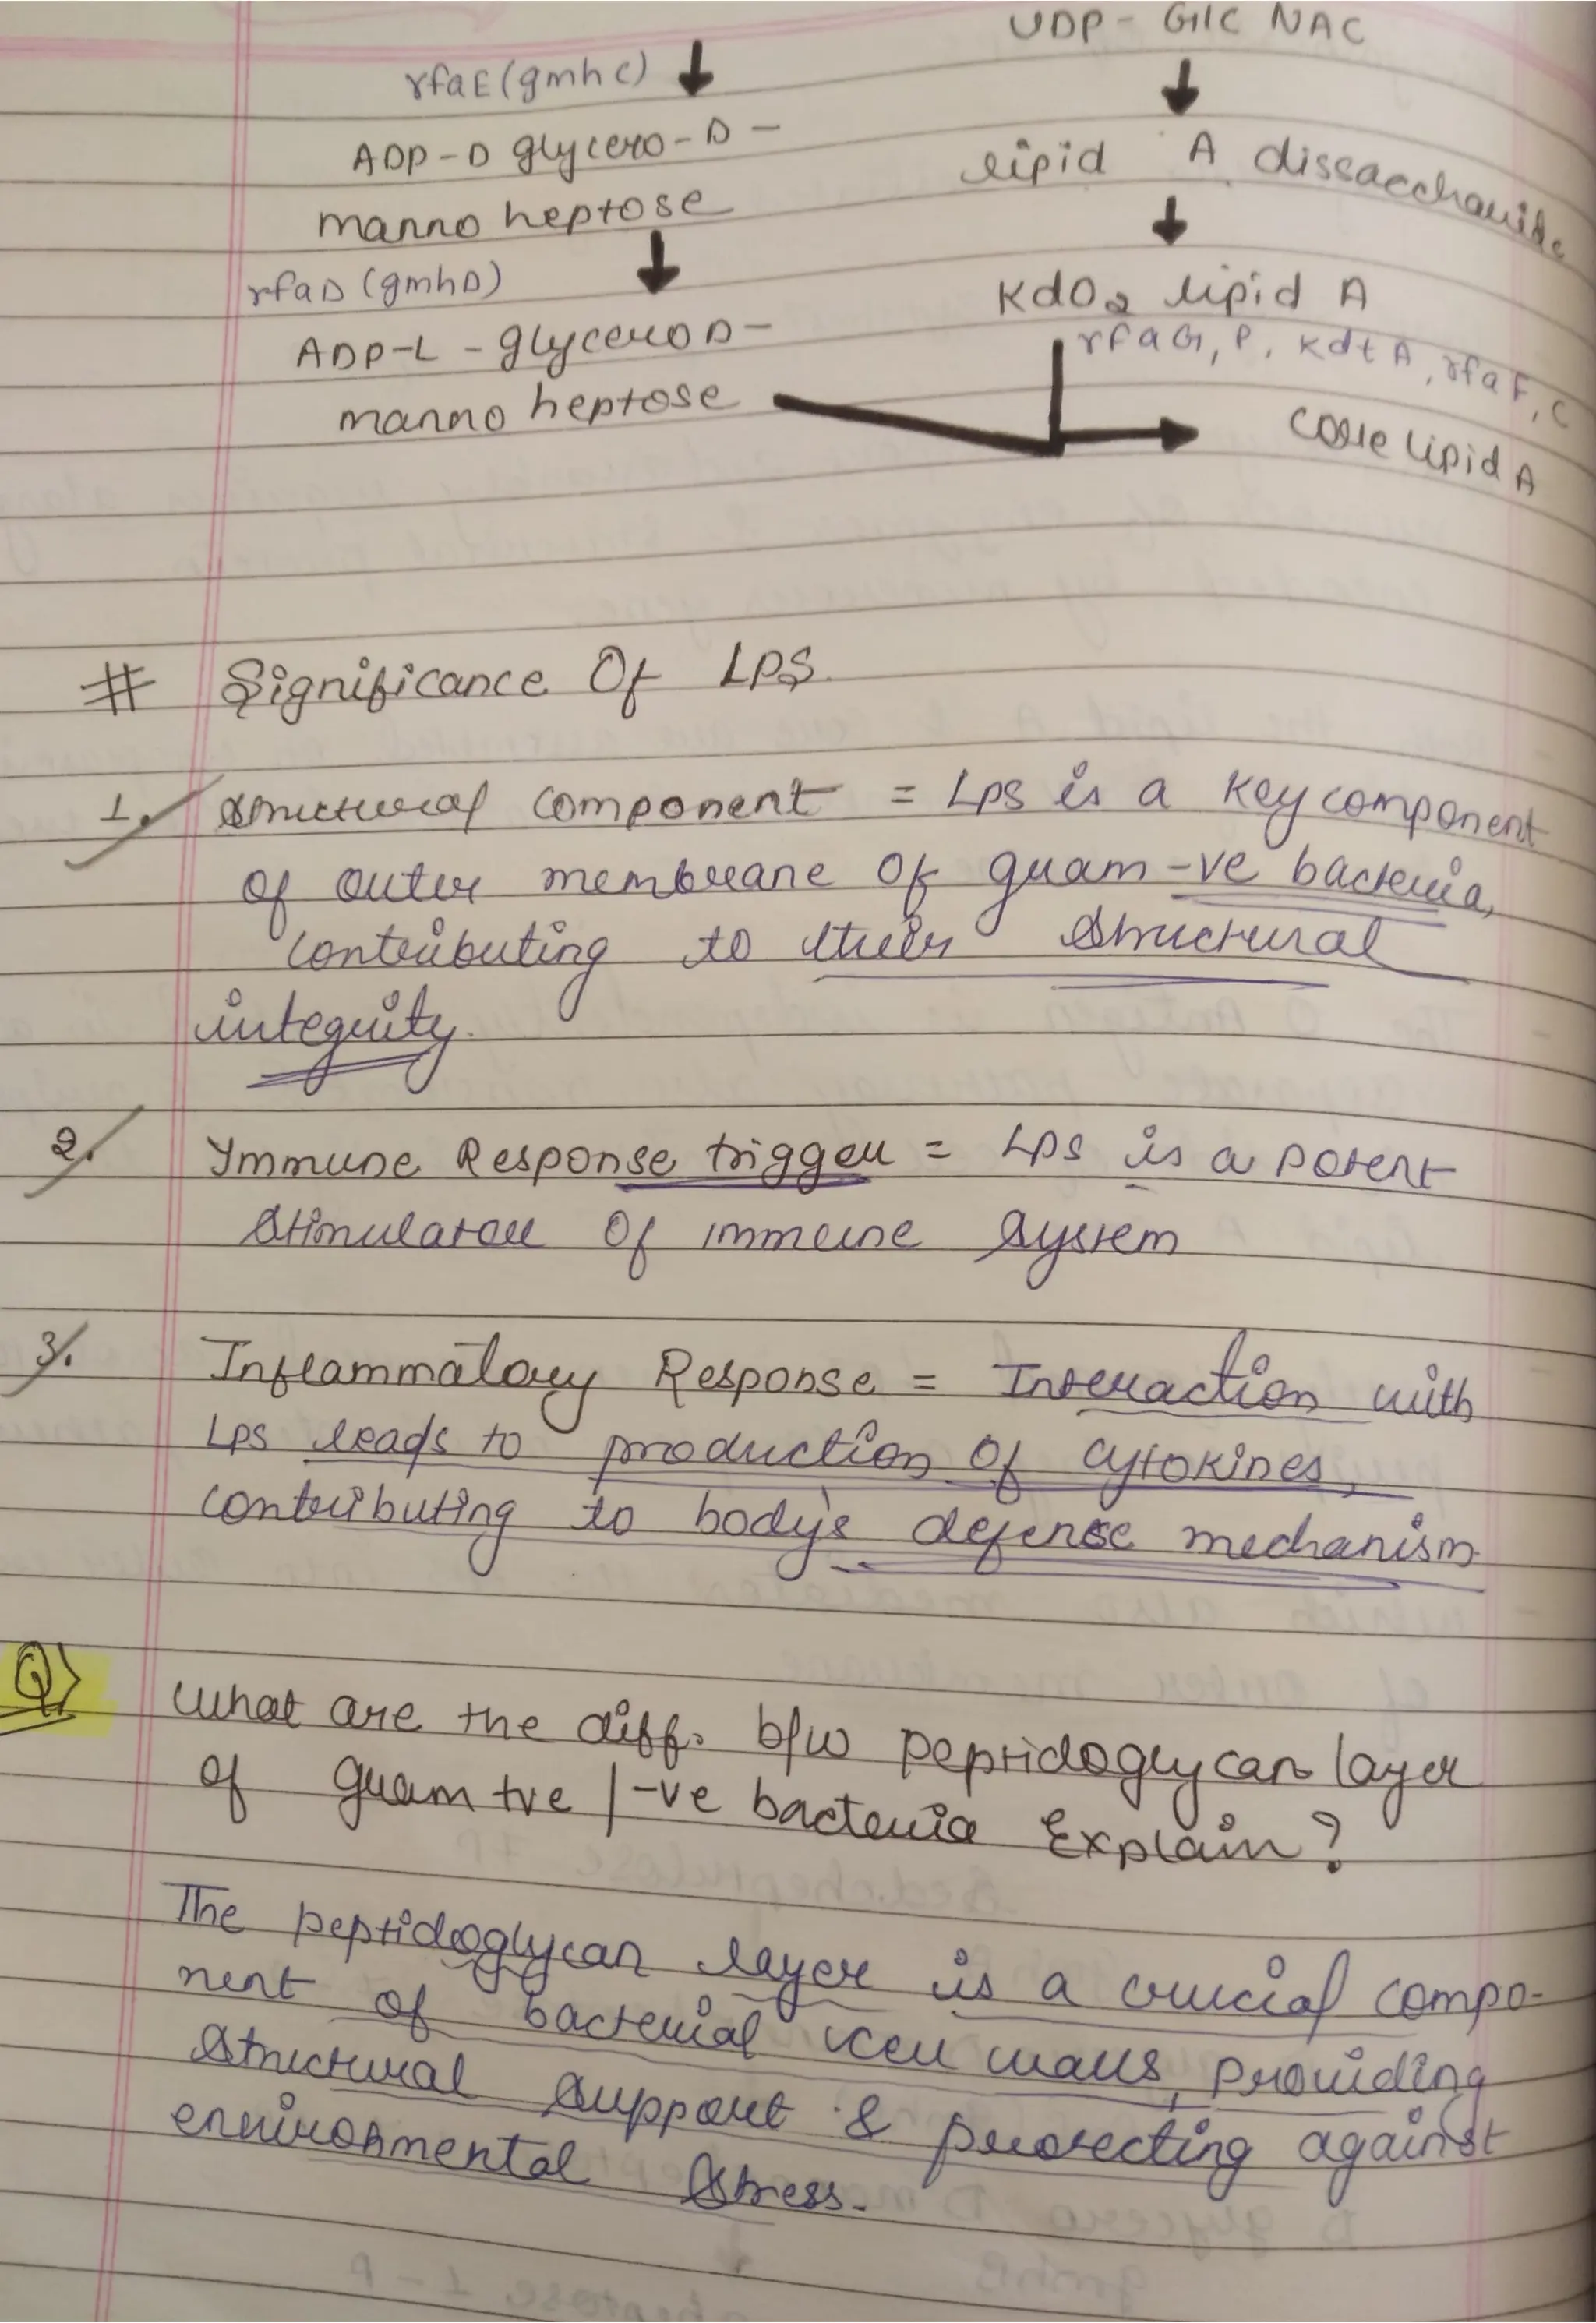 rfaE(gmhC)
ADP-D glycero-D-
manno heptose
rfaD (gmhD)
ADP-L-glycero D-
manno heptose
UDP-GlC NAC
lipid A dissaccharide
KdO2 lipid A
rfaG, P, KdtA, rfaF, C
core lipid A
# Significance Of LPS
1. Structural component = LPS is a key component
of outer membrane of gram -ve bacteria,
contributing to their structural
integrity.
2. Immune Response trigger = LPS is a potent
stimulator of immune system
3. Inflammatory Response = Interaction with
LPS leads to production of cytokines,
contributing to body's defense mechanism
Q) What are the diff. b/w peptidoglycan layer
of gram +ve /-ve bacteria Explain?
The peptidoglycan layer is a crucial compo-
nent of bacterial cell walls, providing
structural support & protecting against
environmental stress.